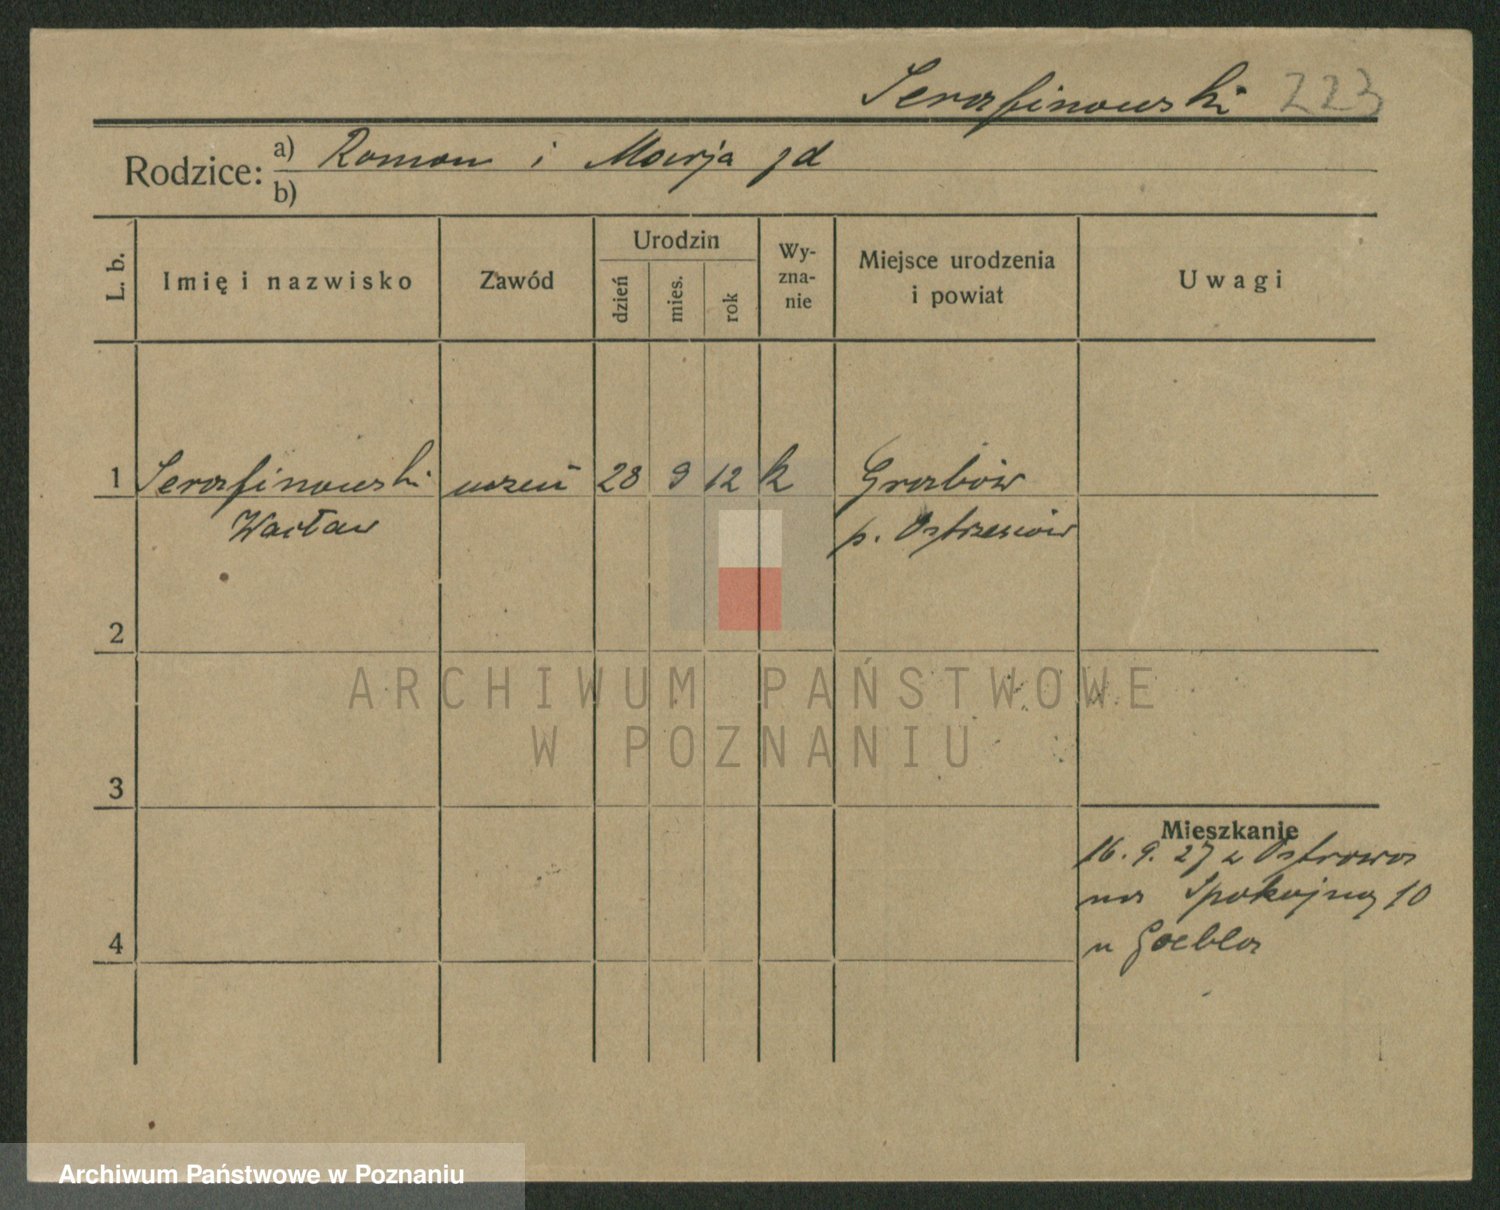 Serafinowski 223
Rodzice: a) Roman i Marja jd
b)
L. b.
Imię i nazwisko
Zawód
Urodzin
dzień
mies.
rok
Wy-
zna-
nie
Miejsce urodzenia
i powiat
Uwagi
1 Serafinowski uczeń 28 9 12 k Grabów
Wacław p. Ostrzeszów
2
3
4
Mieszkanie
16. 9. 27 z Ostrowa
na Spokojną 10
u Goebla
ARCHIWUM PAŃSTWOWE
W POZNANIU
Archiwum Państwowe w Poznaniu